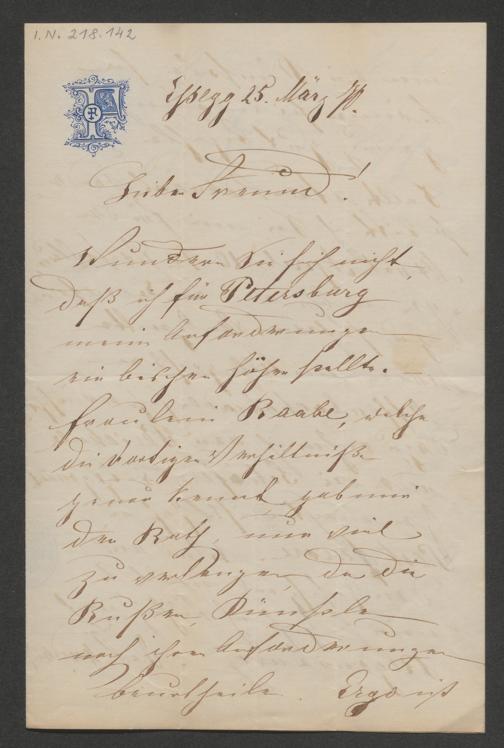 I.N. 218.142
Essegg 25. März
Lieber Freund!
Wundern Sie sich nicht
daß ich für Petersburg
meine Anforderungen
ein bischen höher stellte.
Fräulein Raabe, welche
die dortigen Verhältniße
genau kennt, gab mir
den Rath, nur viel
zu verlangen, da die
Rußen, Künstler
nach ihren Anforderungen
beurtheilen. Ergo ist